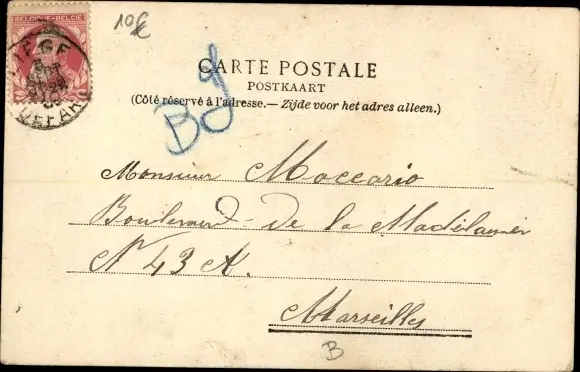 BELGIQUE·BELGIË
LIÈGE
DEPART
10€
CARTE POSTALE
POSTKAART
(Côté réservé à l'adresse.— Zijde voor het adres alleen.)
B
Monsieur Moccario
Boulevard de la Madeleine
N 43 A.
Marseilles
B